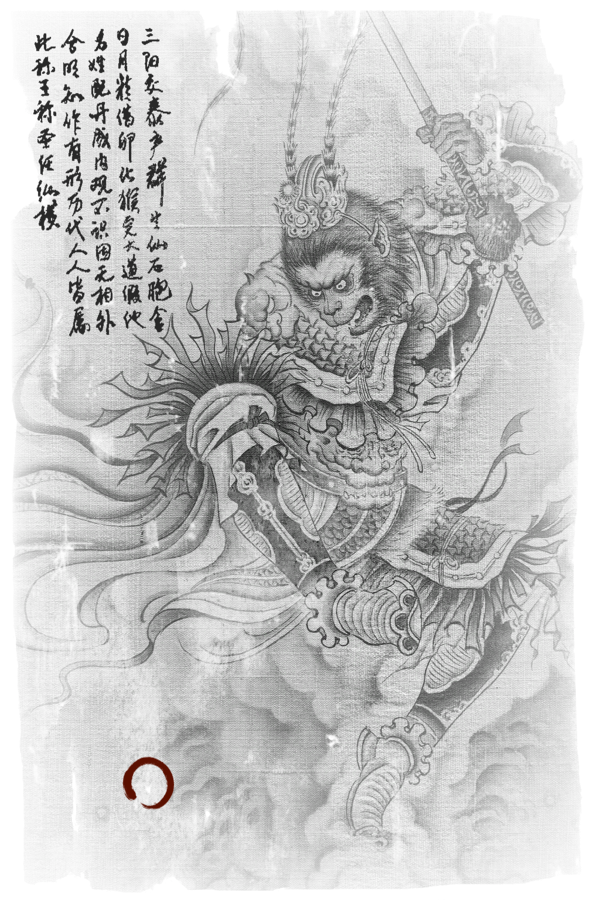 三阳交泰产群生仙石胞含
日月精借卵化猴完大道假他
名姓配丹成内观不识因无相外
合明知作有形历代人人皆属
此称王称圣任纵横